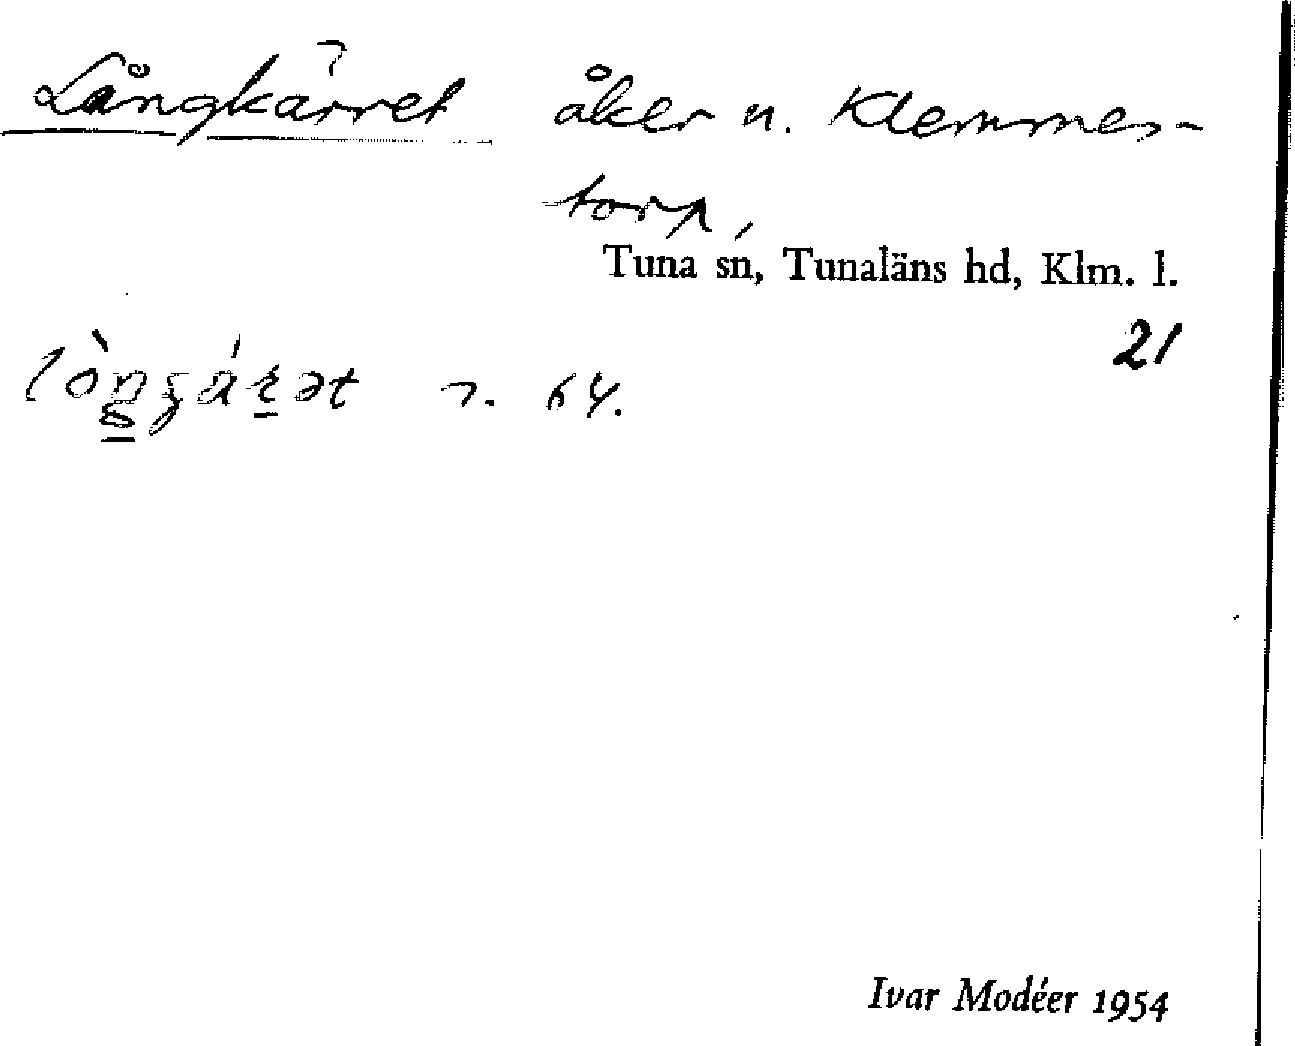 Långkärret åker n. Klemmes-
torp,
Tuna sn, Tunaläns hd, Klm. l.
21
64.
Ivar Modéer 1954